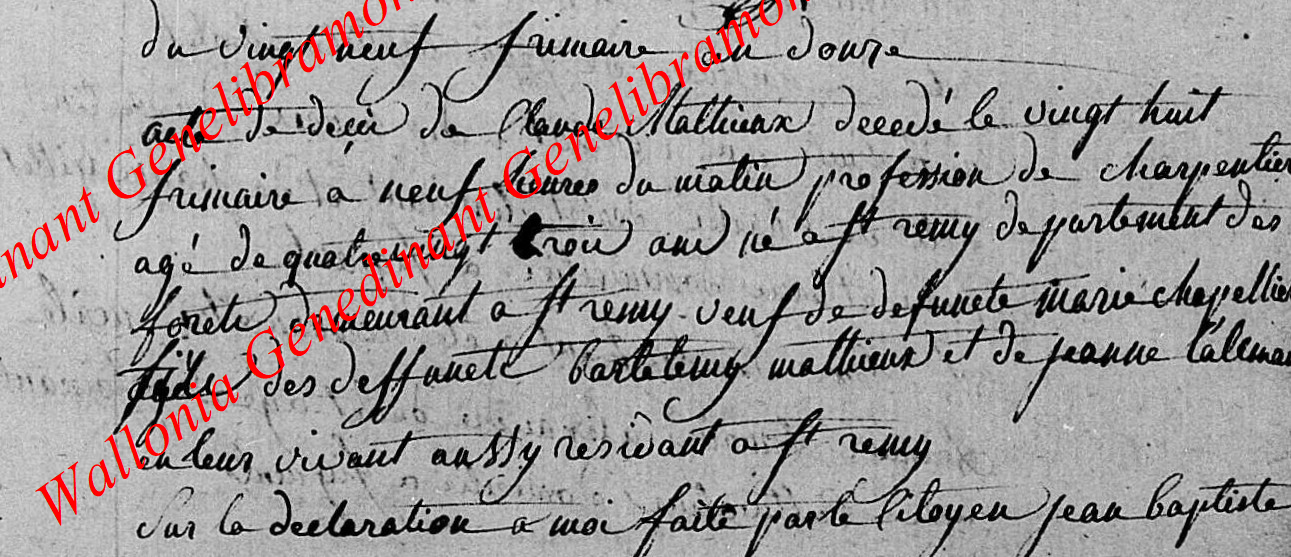 du vingt neuf frimaire an douze
acte de décé de Claude Mathieux decedé le vingt huit
frimaire a neuf heures du matin profession de charpentier
agé de quatrevingt trois ans né a st remy departement des
forets demeurant a st remy veuf de defuncte marie chapellier
fils des deffuncts bartelemy mathieux et de jeanne
en leur vivant aussy residant a st remy
Sur la declaration a moi faite par le Citoyen jean baptiste
Wallonia Genedinant Genelibramon
inant Genelibramon